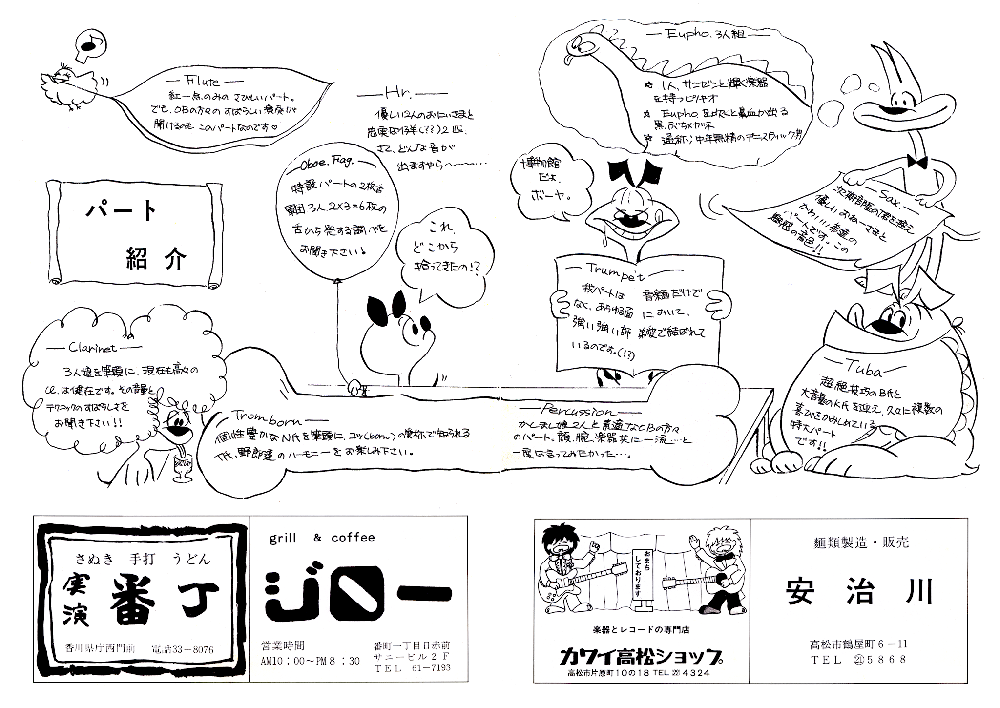 パート
紹介
—Flute—
紅一点のみの さびしいパート。
でも、OBの方々の すばらしい演奏が
聞けるのも このパートなのです♡
—Hr.—
優しい2人のおにいさまと
さて、どんな音が
出ますやら〜〜〜…
—Oboe. Fag.—
特設パートの2枚舌
軍団3人 2×3=6枚の
舌から発する調べを
お聞き下さい。
これ、
どこから
拾ってきたの!?
—Eupho. 3人組—
☆ 1人、サンゼンと輝く楽器
を持つ
☆ Eupho.
☆ 通称;中年無精のテニスティック
博物館
だよ、
ボーヤ。
—Trumpet—
我パートは 音楽だけで
なく、あらゆる面 において、
強い強い絆 で結ばれて
いるのです。(!?)
—Sax.—
優しいおねーさまと
パートです。この
魅惑の音色!!
—Tuba—
超絶技巧のB氏と
大音量のK氏を迎え、久々に複数の
喜びをかみしめている
特大パート
です!!
—Clarinet—
3人娘を筆頭に、現在も高々の
Cl. は健在です。その音量と
テクニックのすばらしさを
お聞き下さい!!
—Tromborn—
個性豊かなN氏を筆頭に、ユッ(born)の愛称で知られる
T氏、野郎達のハーモニーをお楽しみ下さい。
—Percussion—
かしまし娘2人と素適なOBの方々
のパート、顔、腕、楽器共に一流…と
一度は言ってみたかった…。
さぬき 手打 うどん
実演 番丁
香川県庁西門前 電話33-8076
grill & coffee
ジロー
営業時間
AM10:00〜PM8:30
番町一丁目日赤前
サニービル2F
TEL 61-7193
おまちしております
楽器とレコードの専門店
カワイ高松ショップ。
高松市片原町10の18 TEL㉑4324
麺類製造・販売
安治川
高松市鶴屋町6-11
TEL ㉑5868